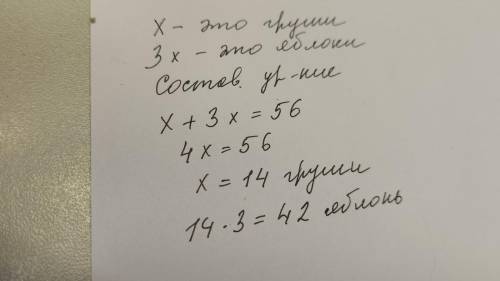 х - это груши
3х - это яблоки
Состав. ур-ние
х + 3х = 56
4х = 56
х = 14 груши
14 · 3 = 42 яблонь